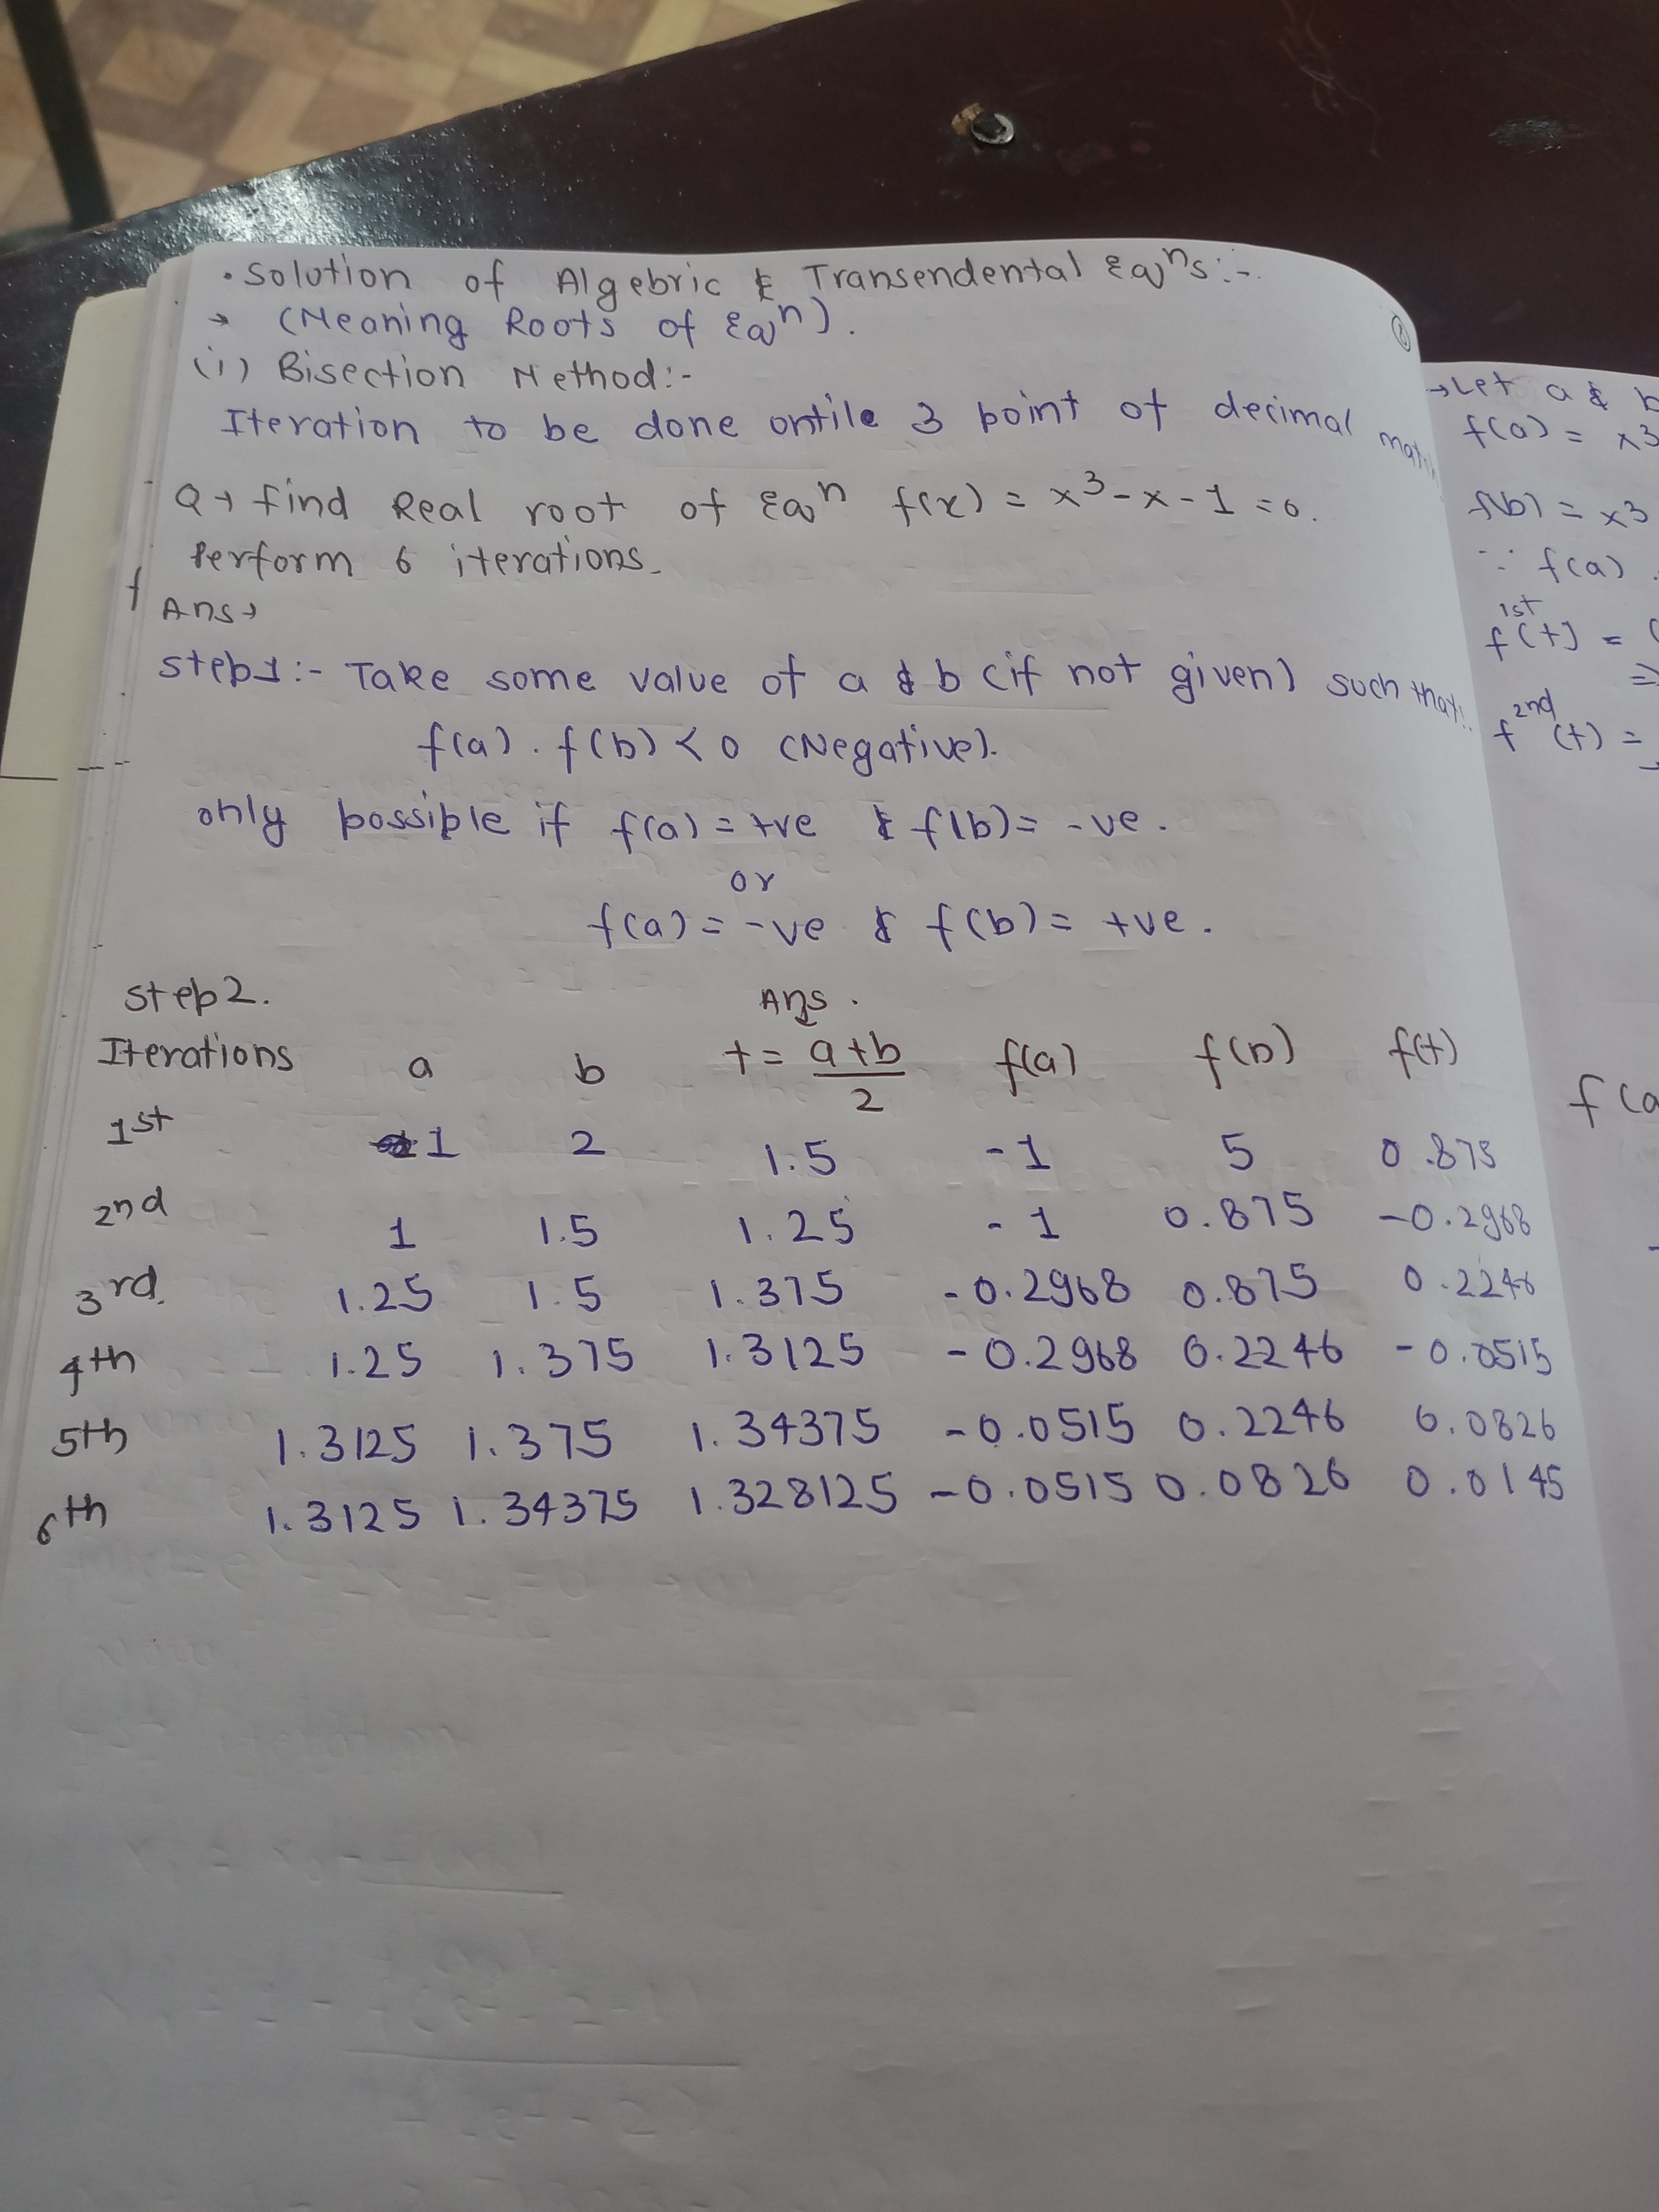 • Solution of Algebric & Transendental Eqns:-
→ (Meaning Roots of Eqn).
(i) Bisection Method:-
Iteration to be done ontile 3 point of decimal
Q→ find Real root of Eqn f(x) = x³-x-1=0.
Perform 6 iterations.
Ans→
Step1:- Take some value of a & b (if not given) such that:
f(a) . f(b) < 0 (Negative).
only possible if f(a) = +ve & f(b) = -ve.
or
f(a) = -ve & f(b) = +ve.
Step2. Ans.
Iterations a b t = a+b/2 f(a) f(b) f(t)
1st 1 2 1.5 -1 5 0.875
2nd 1 1.5 1.25 -1 0.875 -0.2968
3rd. 1.25 1.5 1.375 -0.2968 0.875 0.2246
4th 1.25 1.375 1.3125 -0.2968 0.2246 -0.0515
5th 1.3125 1.375 1.34375 -0.0515 0.2246 0.0826
6th 1.3125 1.34375 1.328125 -0.0515 0.0826 0.0145
→Let a & b
f(a) = x³
f(b) = x³
∵ f(a)
1st
f(t) =
⇒
f 2nd (t) =
f(a